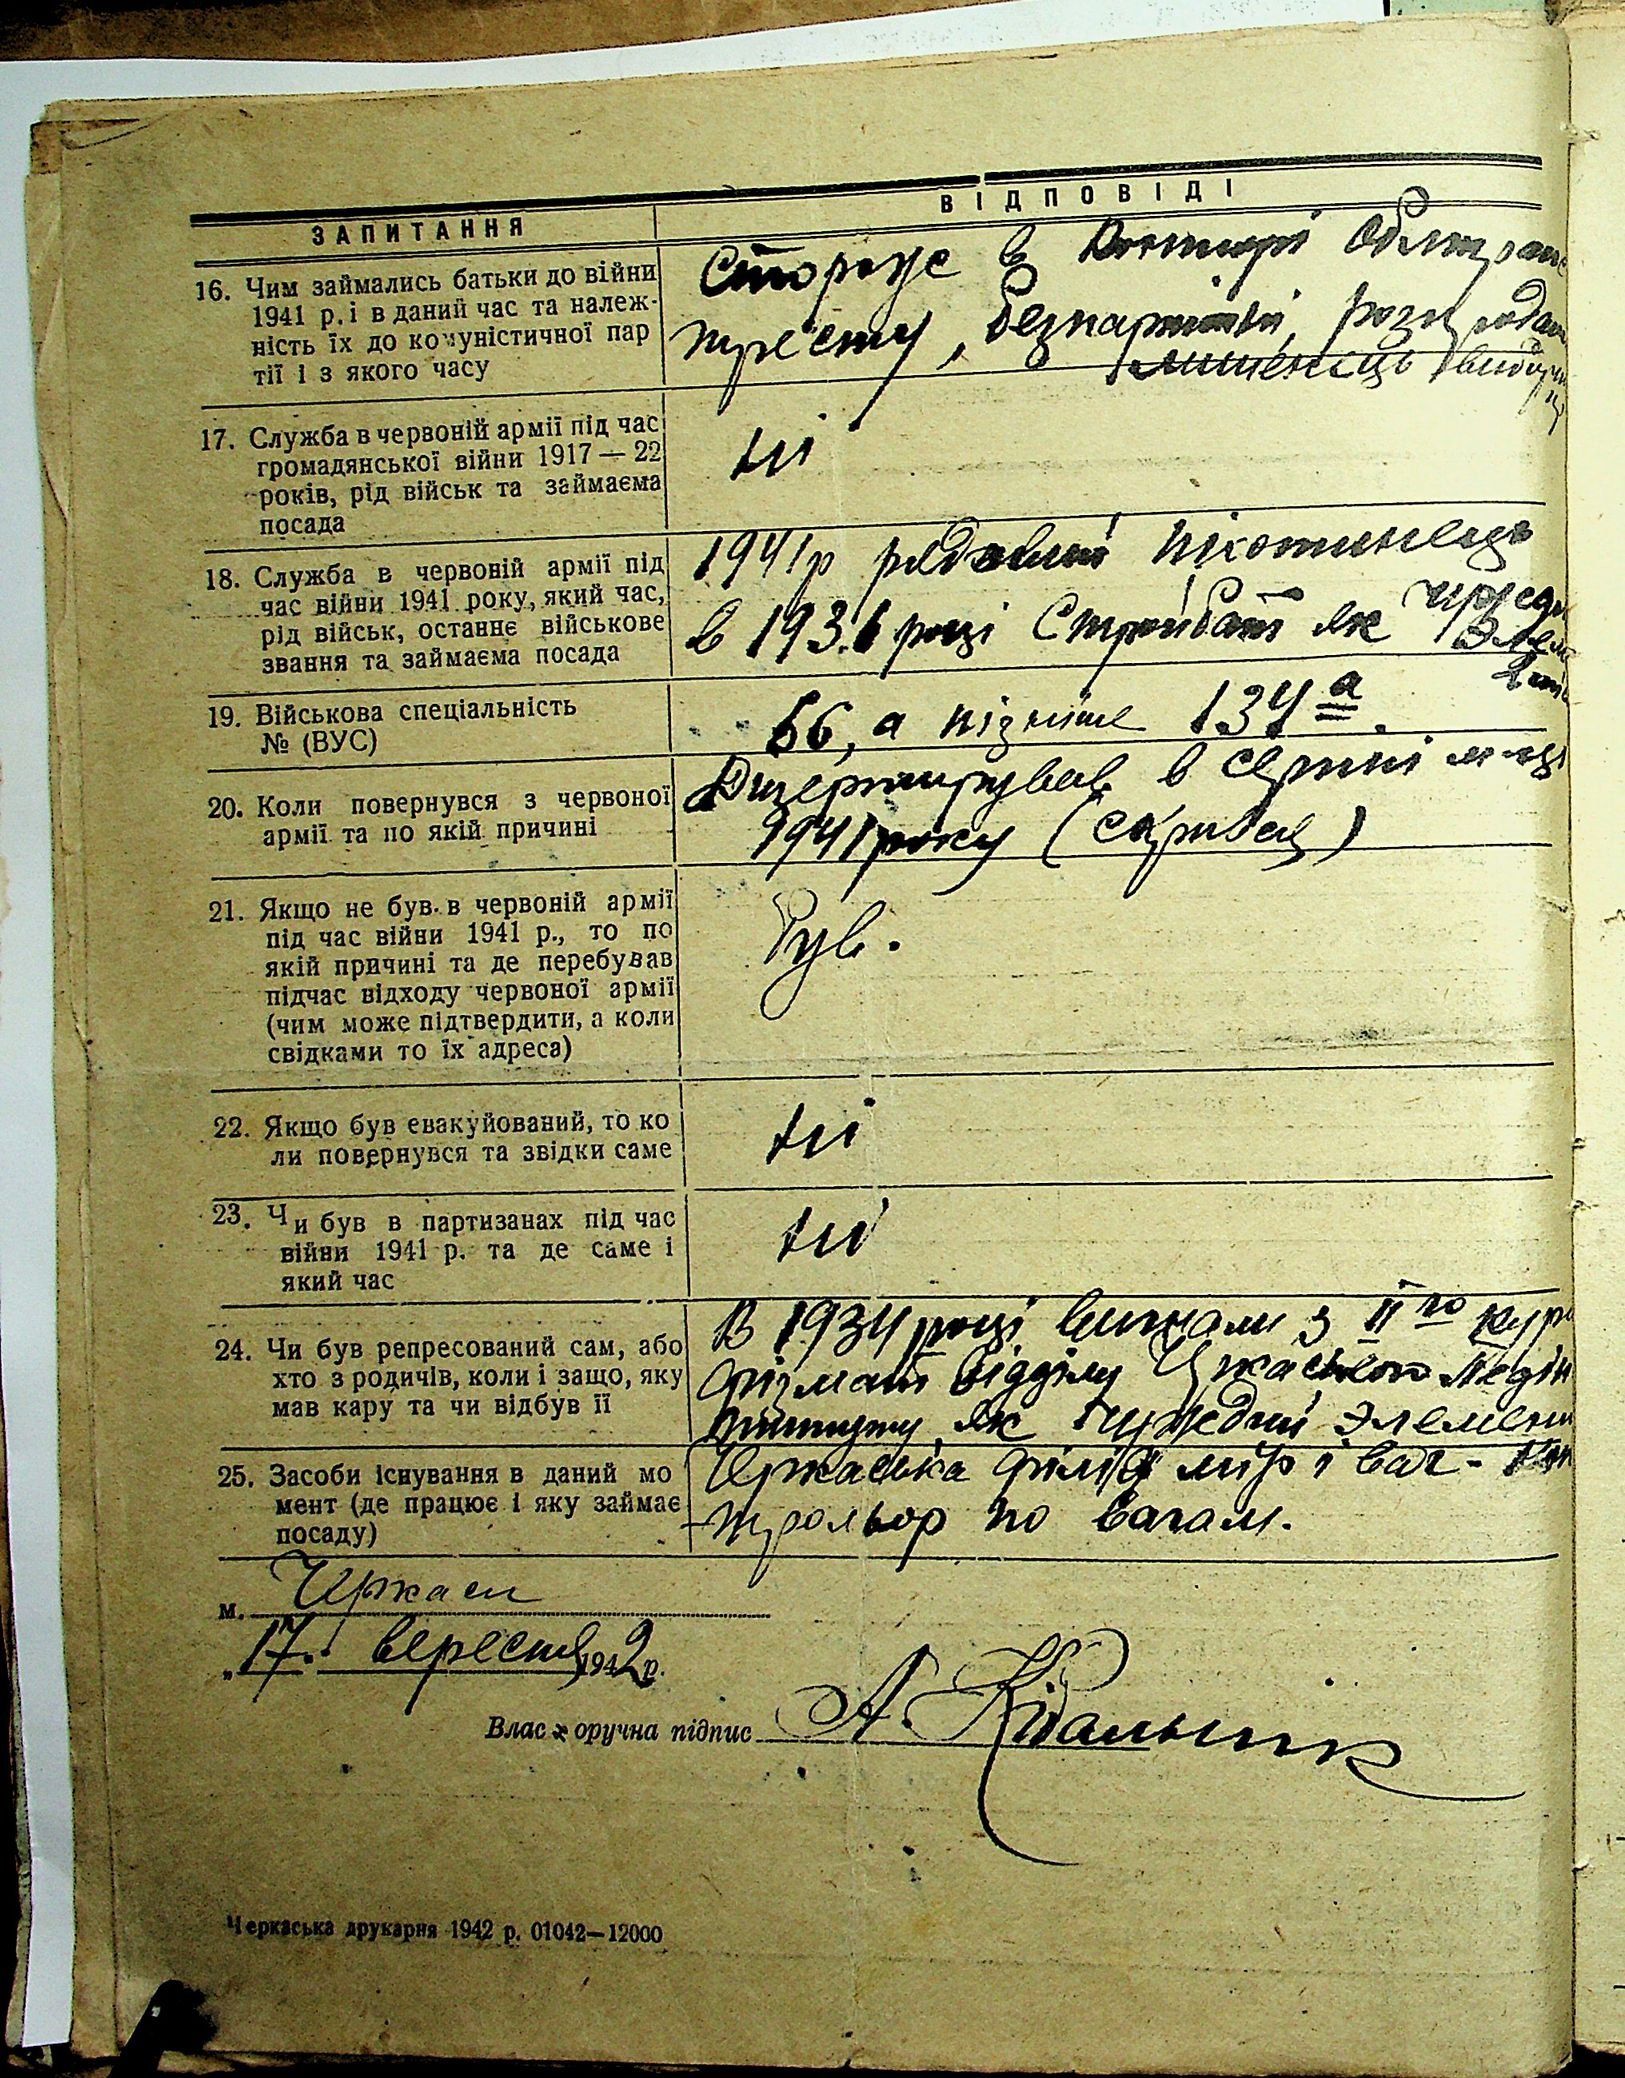 ЗАПИТАННЯ
ВІДПОВІДІ
16. Чим займались батьки до війни
1941 р. і в даний час та належ-
ність їх до комуністичної пар
тії і з якого часу
Сторожує в
тресту, безпартійні,
17. Служба в червоній армії під час
громадянської війни 1917 — 22
років, рід військ та займаєма
посада
ні
18. Служба в червоній армії під
час війни 1941 року, який час,
рід військ, останнє військове
звання та займаєма посада
1941 р рядовий
в 1931 році Стройбат як
19. Військова спеціальність
№ (ВУС)
66, а пізніше 134 а.
20. Коли повернувся з червоної
армії та по якій причині
Дизертирував в серпні м-ці
1941 року
21. Якщо не був в червоній армії
під час війни 1941 р., то по
якій причині та де перебував
підчас відходу червоної армії
(чим може підтвердити, а коли
свідками то їх адреса)
Був.
22. Якщо був евакуйований, то ко
ли повернувся та звідки саме
ні
23. Чи був в партизанах під час
війни 1941 р. та де саме і
який час
ні
24. Чи був репресований сам, або
хто з родичів, коли і защо, яку
мав кару та чи відбув її
В 1934 році вигнали з II го
фізмат відділу
як чуждий
25. Засоби існування в даний мо
мент (де працює і яку займає
посаду)
Черкаська філія мір і ваг -
трольор по вагам.
м. Черкаси
„17" вересня 1942 р.
Влас оручна підпис А. Кідальник
Черкаська друкарня 1942 р. 01042—12000